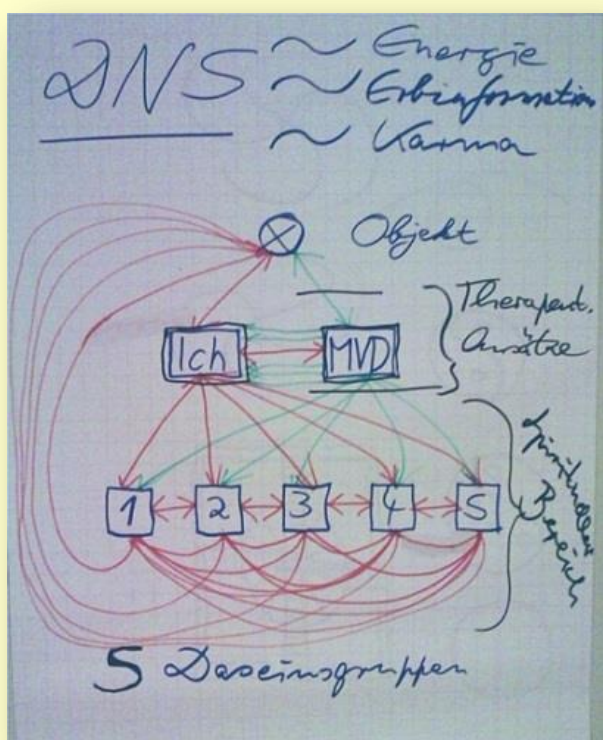 DNS ~ Energie
~ Erbinformation
~ Karma
Objekt
Therapeut.
Ansätze
Ich
MVD
Spiritueller
Bereich
1 2 3 4 5
5 Daseinsgruppen